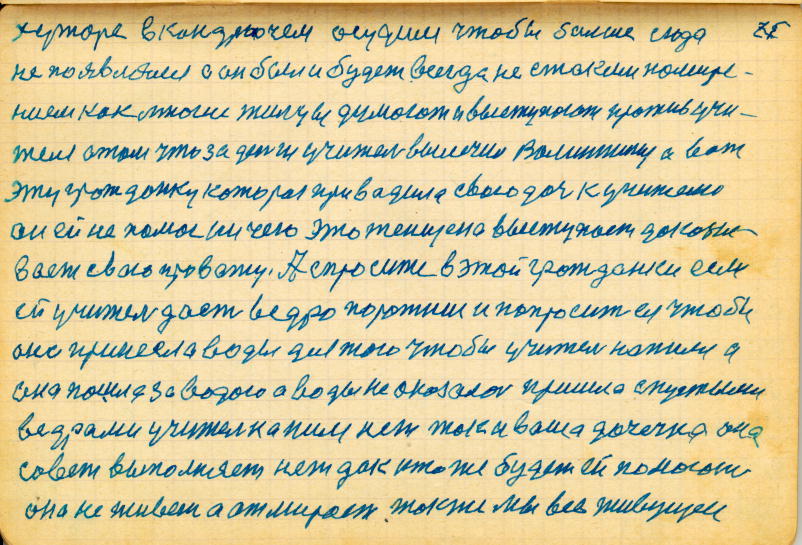 хуторе в кандрючем осудим чтобы болше сюда
не появлялся а он был и будет всегда не с таким намире-
нием как многие живу и думогот и выступают против учи-
теля о том что за денги учител вылечил Валинтину а вот
эту грожданку которая привадила свого доч к учителю
он ей не помог ничего это женщена выступает доказы-
вает свого провату. А спросите в этой гражданки если
ей учител даст ведро порожние и попросит ея чтобы
оно принесла воды для того чтобы учител напился а
она пошла за водого а воды не оказалос пришла с пустыми
ведрами учител напился нет так и ваша дочечка она
совет выполняет нет дак кто же будет ей помогат
она не живет а отмирает также мы все живущеи